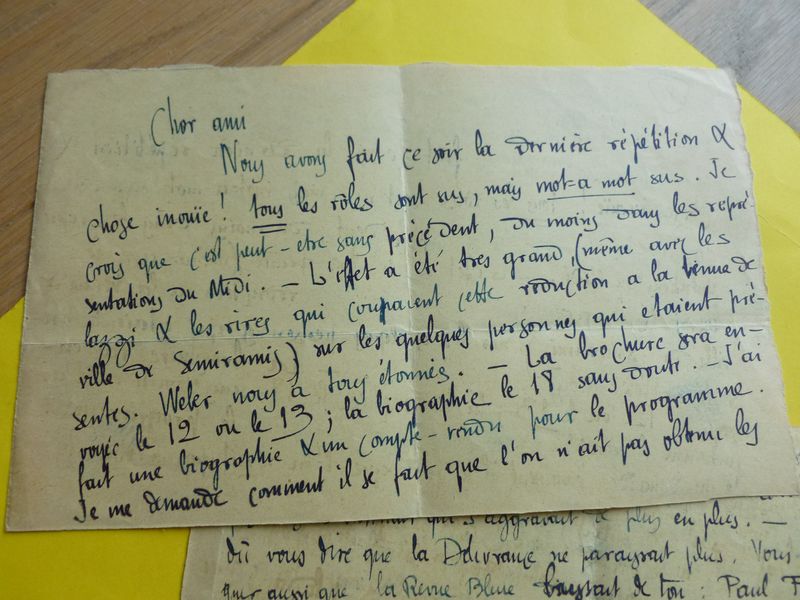 Cher ami
Nous avons fait ce soir la dernière répétition &
chose inouïe! tous les rôles sont sus, mais mot-a mot sus. Je
crois que c'est peut-etre sans précédent, du moins dans les repré-
sentations du Midi. — L'effet a été tres grand, (même avec les
lazzi & les rires qui coupaient cette réduction a la tenue de
ville de Semiramis) sur les quelques personnes qui etaient pré-
sentes. Weler nous a tous étonnés. — La brochure sera en-
voyée le 12 ou le 13; la biographie le 18 sans doute. — J'ai
fait une biographie & un compte-rendu pour le programme.
Je me demande comment il se fait que l'on n'ait pas obtenu les
qui s'aggravait de plus en plus. —
dû vous dire que la Délivrance ne paraissait plus. Vous
aussi que la Revue Bleue de ton : Paul F